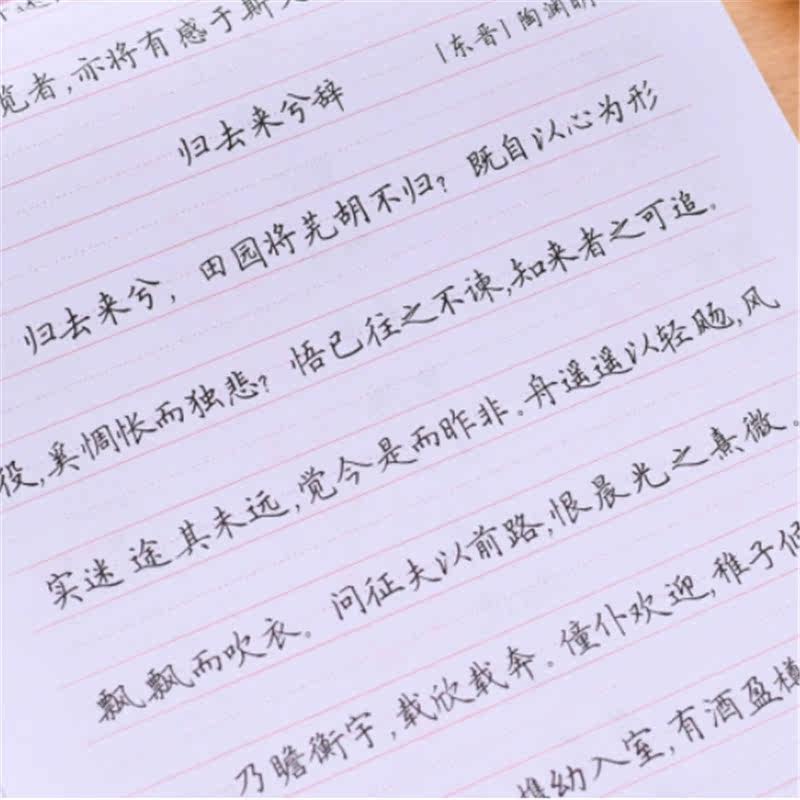 览者,亦将有感于斯文
[东晋]陶渊明
归去来兮辞
归去来兮，田园将芜胡不归？既自以心为形
役,奚惆怅而独悲？悟已往之不谏,知来者之可追。
实迷途其未远,觉今是而昨非。舟遥遥以轻飏,风
飘飘而吹衣。问征夫以前路,恨晨光之熹微。
乃瞻衡宇,载欣载奔。僮仆欢迎,稚子候
携幼入室,有酒盈樽